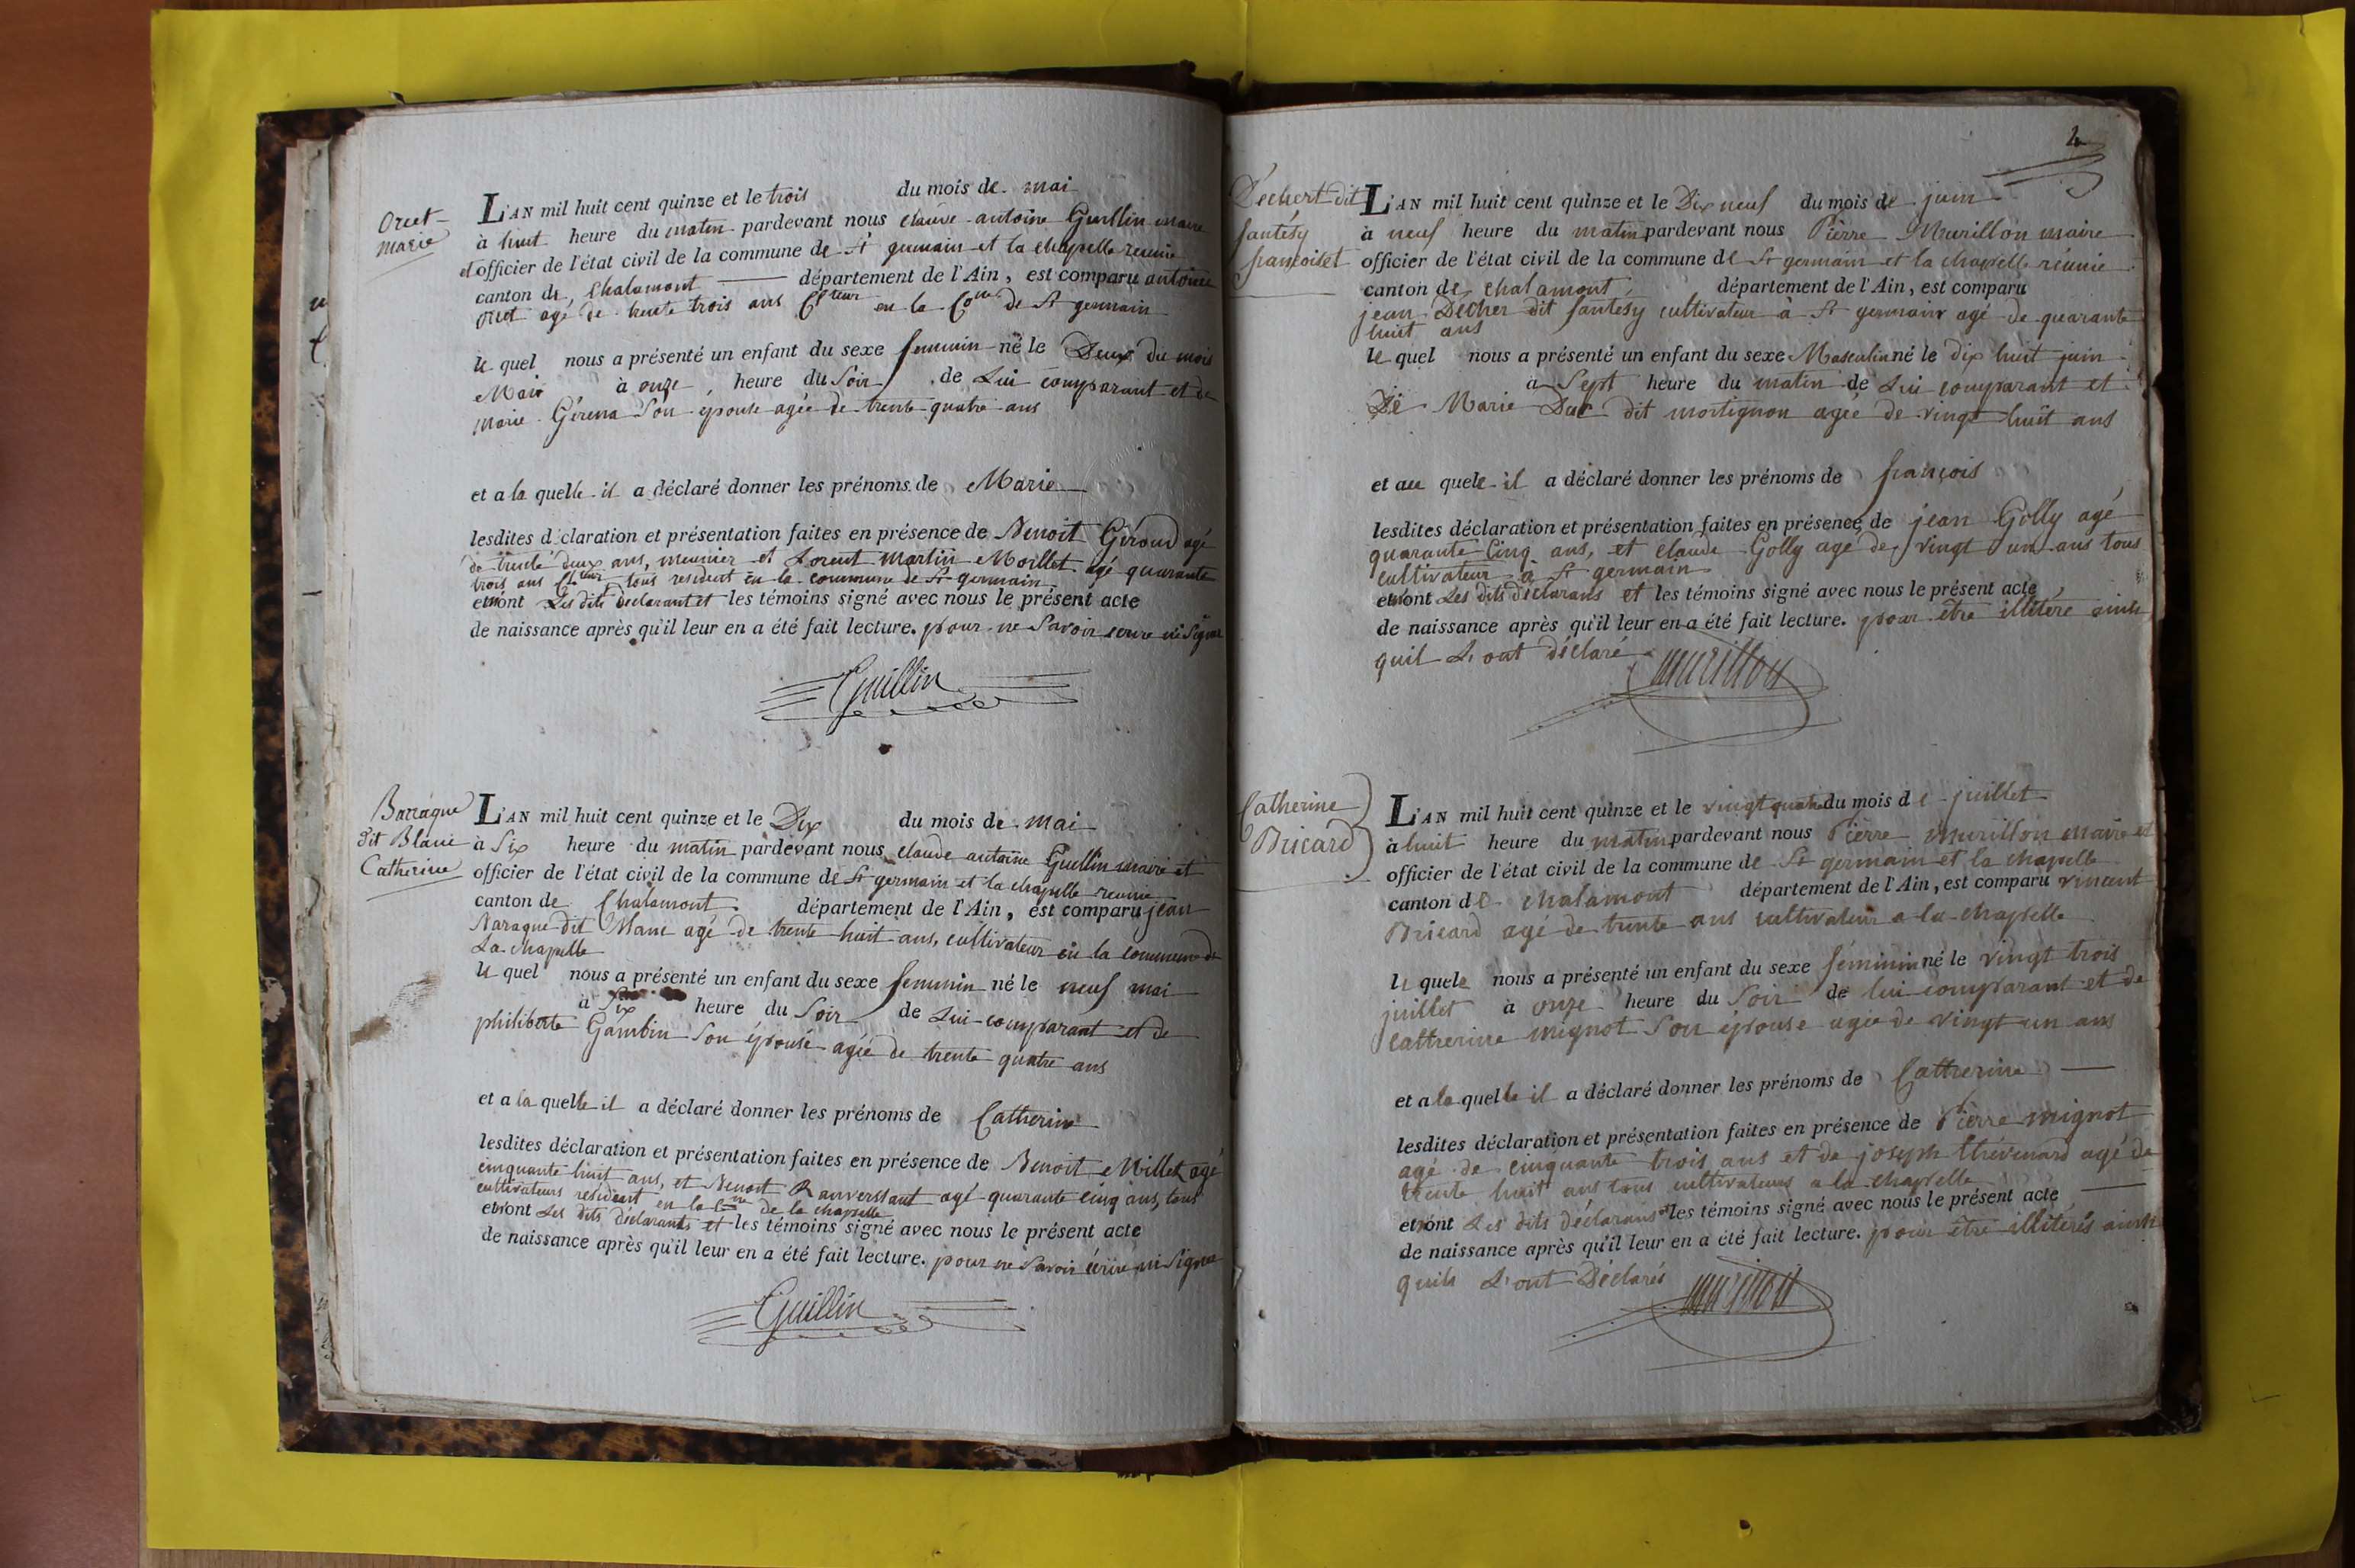 Orcet
marie
L'AN mil huit cent quinze et le trois du mois de mai
à huit heure du matin pardevant nous claude antoine Guillin maire
et officier de l'état civil de la commune de St germain et la chapelle reunie
canton de, Chalamont département de l'Ain, est comparu antoine
orcet agé de trente trois ans Cteur en la Cone de St germain
le quel nous a présenté un enfant du sexe feminin né le Deux du mois
Mai à onze heure du Soir de Lui comparant et de
Marie Gérena Son épouse agée de trente quatre ans
et a la quelle il a déclaré donner les prénoms de Marie
lesdites déclaration et présentation faites en présence de Benoit Géroud agé
de trente deux ans, meunier et Lorent Martin Moillet agé quarante
trois ans Cteur tous resident en la commune de St germain
et n'ont Les dits declarant et les témoins signé avec nous le présent acte
de naissance après qu'il leur en a été fait lecture. pour ne Savoir ecrire ni Signer
Guillin
Barraque
dit Blanc
Catherine
L'AN mil huit cent quinze et le Dix du mois de mai
à Six heure du matin pardevant nous claude antoine Guillin maire et
officier de l'état civil de la commune de St germain et la chapelle reunie
canton de Chalamont département de l'Ain, est comparu jean
Baraque dit Blanc agé de trente huit ans, cultivateur en la commune de
La chapelle
le quel nous a présenté un enfant du sexe feminin né le neuf mai
à Six heure du Soir de Lui comparant et de
philiberte Gambin Son épouse agée de trente quatre ans
et a la quelle il a déclaré donner les prénoms de Catherine
lesdites déclaration et présentation faites en présence de Benoit Millet agé
cinquante huit ans, et Benoit Ranverssant agé quarante cinq ans, tous
cultivateurs resideant en la Cne de la chapelle
et n'ont Les dits déclarants et les témoins signé avec nous le présent acte
de naissance après qu'il leur en a été fait lecture. pour ne Savoir écrire ni Signer
Guillin
Dechert dit
fantésy
françois et
L'AN mil huit cent quinze et le Dix neuf du mois de juin
à neuf heure du matin pardevant nous Pierre Murillon maire
officier de l'état civil de la commune de St germain et la chapelle réunie
canton de chalamont département de l'Ain, est comparu
jean Décher dit fantésy cultivateur à St germain agé de quarante
huit ans
le quel nous a présenté un enfant du sexe Masculin né le dix huit juin
à Sept heure du matin de Lui comparant et
De Marie Duc dit montignon agée de vingt huit ans
et au quele il a déclaré donner les prénoms de françois
lesdites déclaration et présentation faites en présence de jean Golly agé
quarante Cinq ans, et claude Golly agé de vingt un ans tous
cultivateur à St germain
et n'ont Les dits déclarans et les témoins signé avec nous le présent acte
de naissance après qu'il leur en a été fait lecture. pour être illitéré ainsi
quil L'ont déclaré
murillon
Catherine
Bricard
L'AN mil huit cent quinze et le vingt quatre du mois de juillet
à huit heure du matin pardevant nous Pierre murillon maire et
officier de l'état civil de la commune de St germain et la chapelle
canton de chalamont département de l'Ain, est comparu vincent
Bricard agé de trente ans cultivateur a la chapelle
le quele nous a présenté un enfant du sexe féminin né le vingt trois
juillet à onze heure du Soir de lui comparant et de
Catherine mignot Son épouse agée de vingt un ans
et a la quelle il a déclaré donner les prénoms de Catherine
lesdites déclaration et présentation faites en présence de Pierre mignot
agé de cinquante trois ans et de joseph thévenard agé de
trente huit ans tous cultivateurs a la chapelle
et n'ont Les dits déclarans et les témoins signé avec nous le présent acte
de naissance après qu'il leur en a été fait lecture. pour être illitérés ainsi
quils L'ont Déclarés
murillon